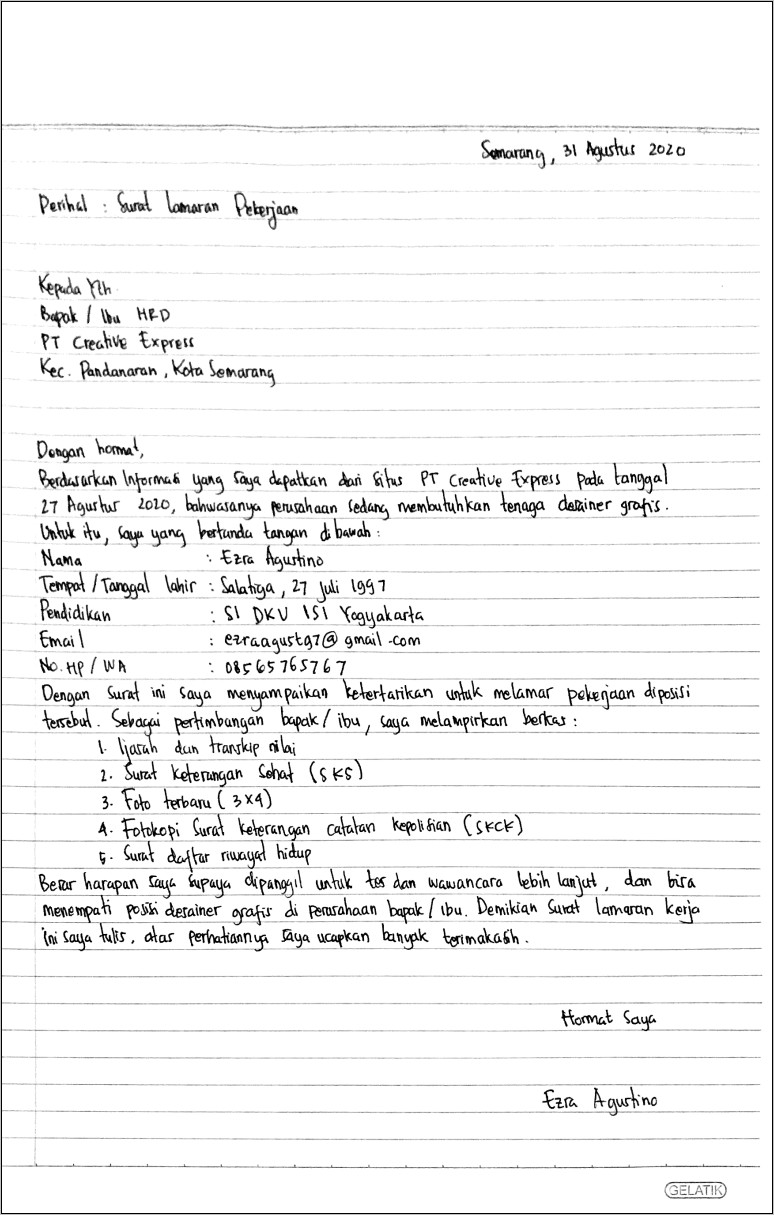 Semarang, 31 Agustus 2020
Perihal : Surat Lamaran Pekerjaan
Kepada Yth
Bapak / Ibu HRD
PT Creative Express
Kec. Pandanaran, Kota Semarang
Dengan hormat,
Berdasarkan Informasi yang saya dapatkan dari situs PT Creative Express pada tanggal
27 Agustus 2020, bahwasanya perusahaan sedang membutuhkan tenaga desainer grafis.
Untuk itu, saya yang bertanda tangan dibawah :
Nama : Ezra Agustino
Tempat / Tanggal lahir : Salatiga, 27 Juli 1997
Pendidikan : S1 DKV ISI Yogyakarta
Email : ezraagust97@gmail.com
No. HP / WA : 08565765767
Dengan surat ini saya menyampaikan ketertarikan untuk melamar pekerjaan diposisi
tersebut. Sebagai pertimbangan bapak / ibu, saya melampirkan berkas :
1. Ijasah dan transkip nilai
2. Surat keterangan Sehat (SKS)
3. Foto terbaru (3x4)
4. Fotokopi Surat keterangan catatan kepolisian (SKCK)
5. Surat daftar riwayat hidup
Besar harapan saya supaya dipanggil untuk tes dan wawancara lebih lanjut, dan bisa
menempati posisi desainer grafis di perusahaan bapak / ibu. Demikian Surat lamaran kerja
ini saya tulis, atas perhatiannya saya ucapkan banyak terimakasih.
Hormat Saya
Ezra Agustino
GELATIK